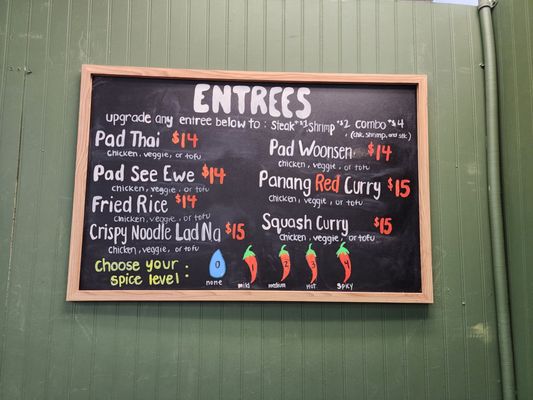 ENTREES
upgrade any entree below to: steak +$3, shrimp +$2 combo +$4
(chk, shrimp, and stk.)
Pad Thai $14
chicken, veggie, or tofu
Pad See Ewe $14
chicken, veggie, or tofu
Fried Rice $14
chicken, veggie, or tofu
Crispy Noodle Lad Na $15
chicken, veggie, or tofu
Pad Woonsen $14
chicken, veggie, or tofu
Panang Red Curry $15
chicken, veggie, or tofu
Squash Curry $15
chicken, veggie, or tofu
Choose your spice level:
0 1 2 3 4
none mild medium hot spicy